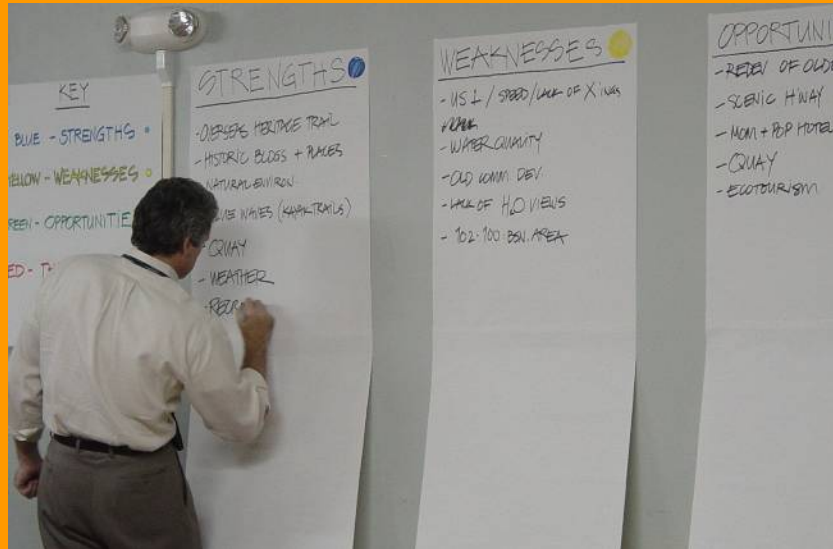 KEY
BLUE - STRENGTHS
YELLOW - WEAKNESSES
GREEN - OPPORTUNITIE
ED - T
STRENGTHS
- OVERSEAS HERITAGE TRAIL
- HISTORIC BLDGS + PLACES
NATURAL ENVIRON.
(KAYAK TRAILS)
- QUAY
- WEATHER
- RECR
WEAKNESSES
- US 1 / SPEED / LACK OF X'INGS
- WATER QUALITY
- OLD COMM. DEV.
- LACK OF H2O VIEWS
- 102-100 BSN. AREA
OPPORTUNI
- REDEV OF OLD
- SCENIC H'WAY
- MOM + POP HOTEL
- QUAY
- ECOTOURISM